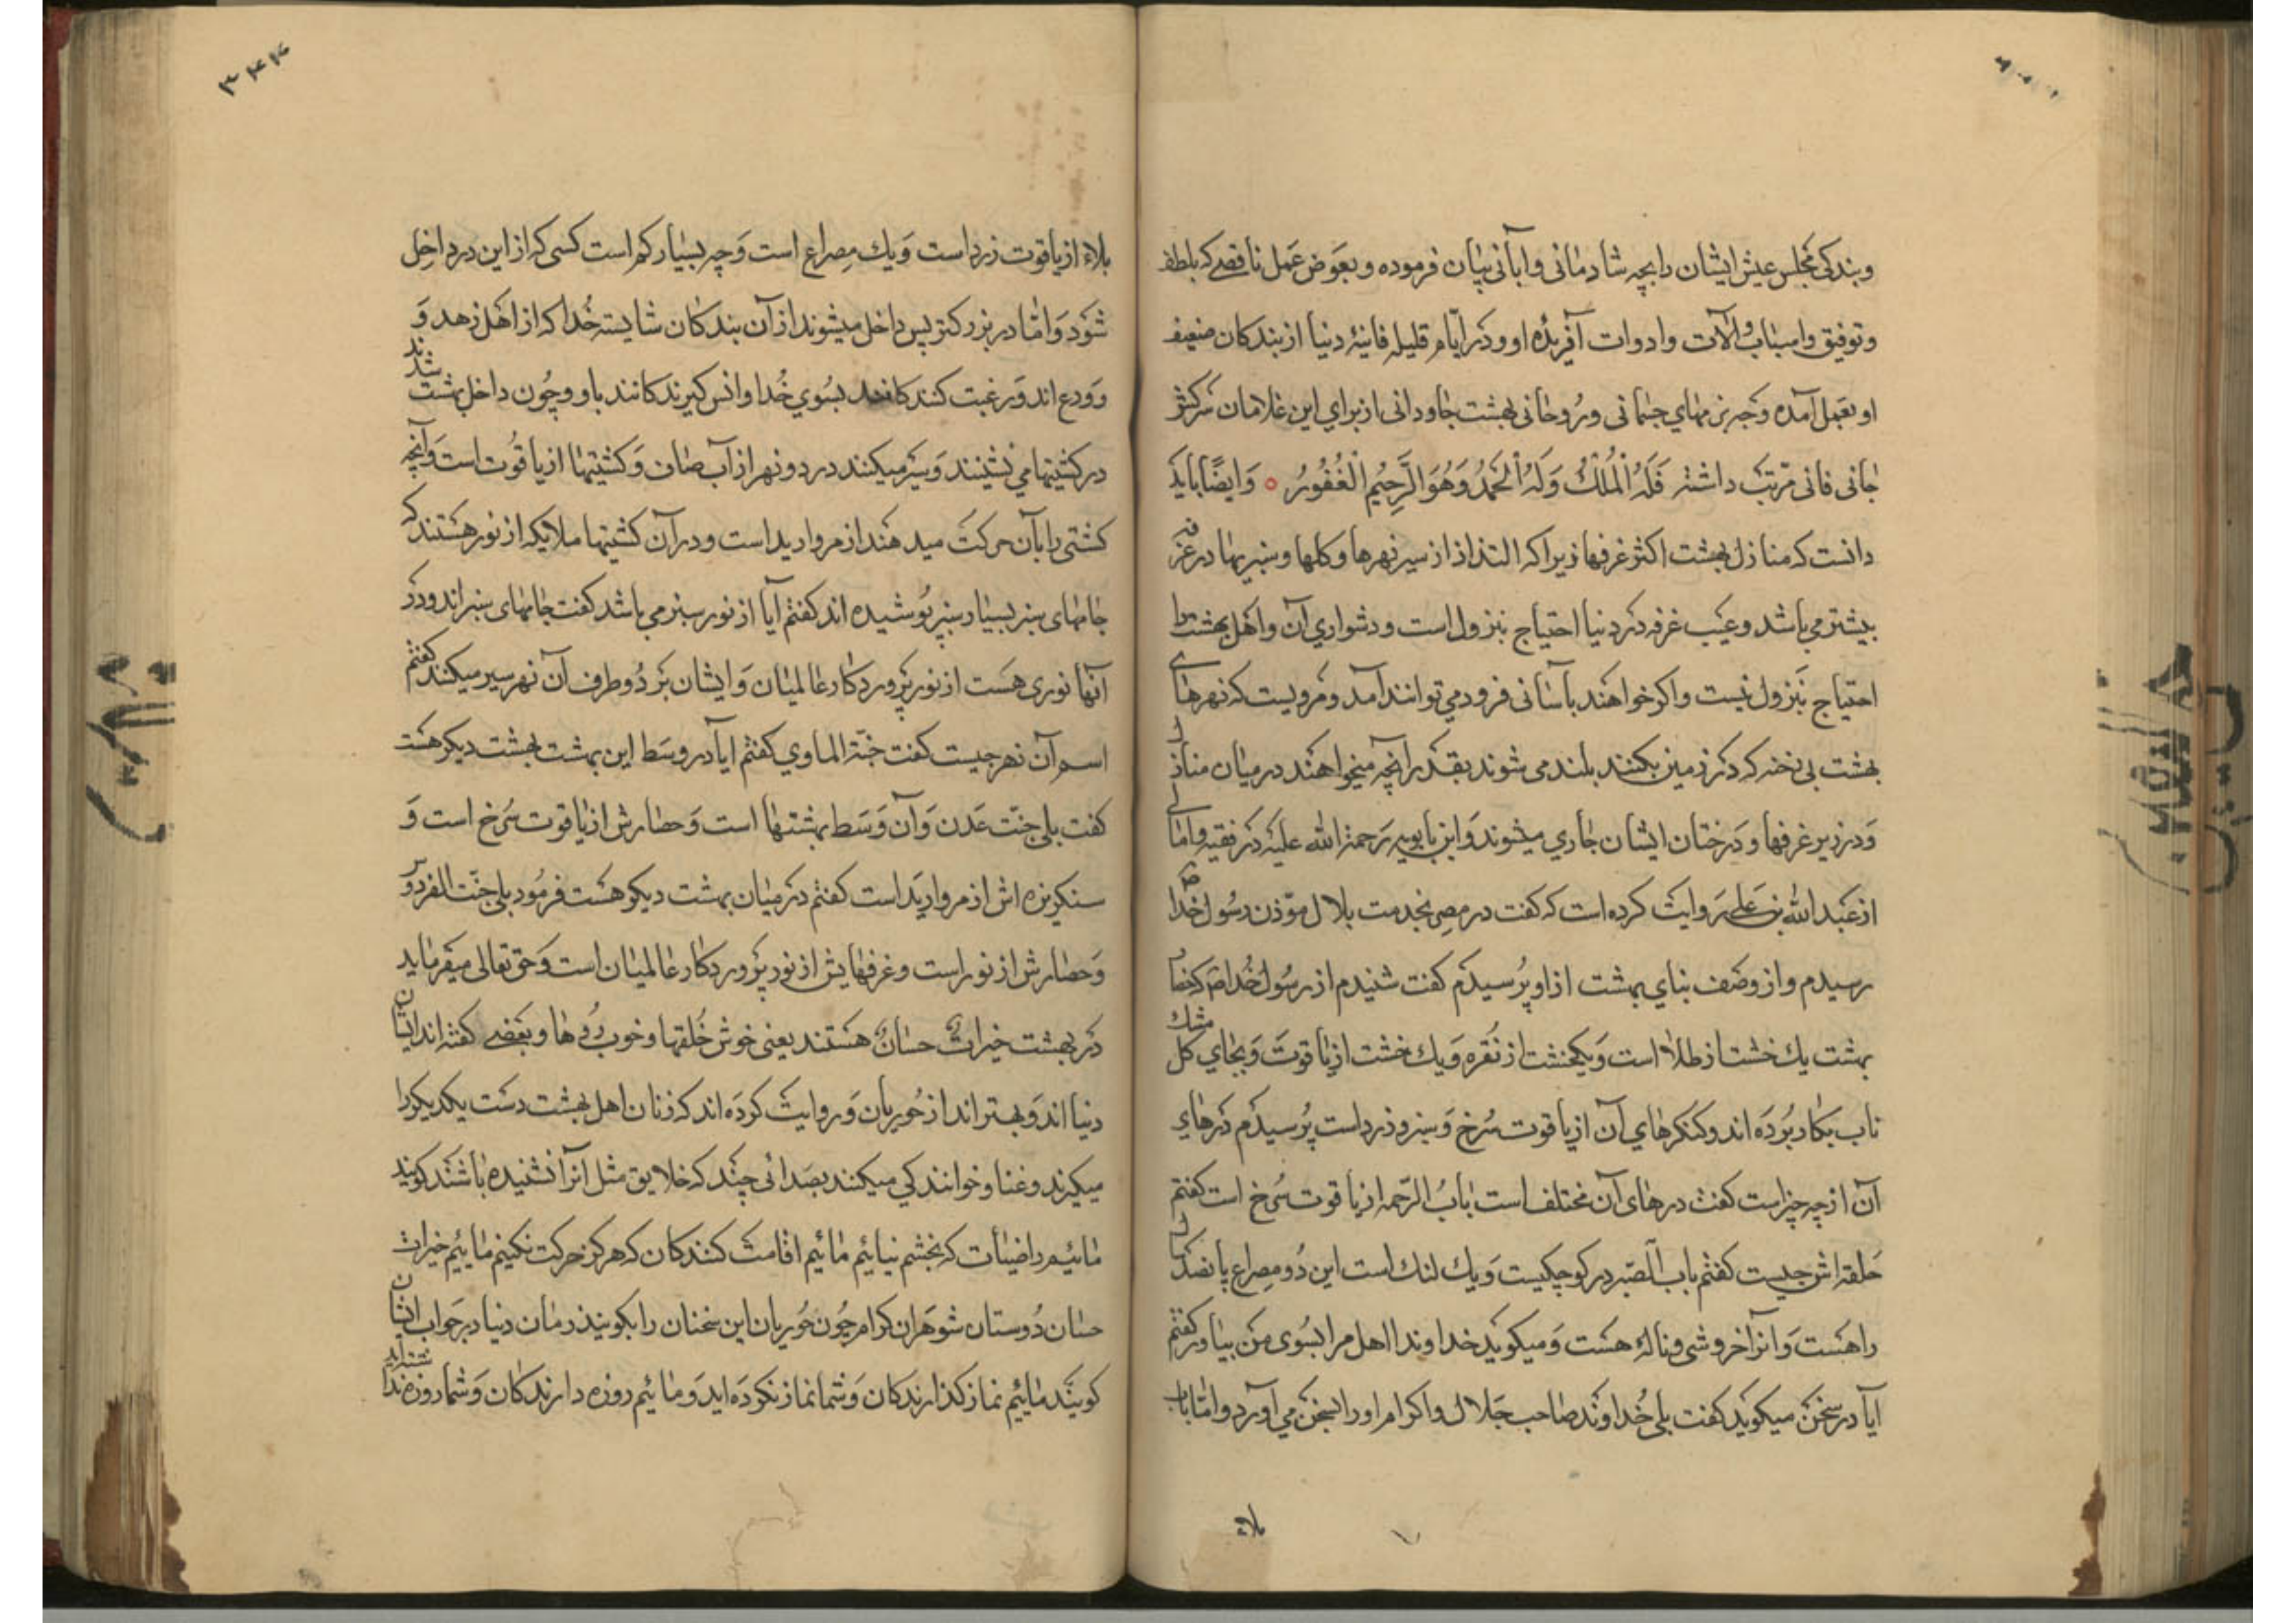 و بندکی مجلس عیش ایشان را بچه شادمانی و ابانی بیان فرموده و بعوض عمل ناقصے که بلطف
و توفیق و اسباب و الآت و ادوات آفریدۀ او و در ایّام قلیلۀ فانیۀ دنیا از بندکان ضعیف
او بعمل آمده و چه بزمهای جسمانی و روحانی بهشت جاودانی از برای این غلامان سرکش
جانی فانی مرتب داشته فَلَهُ الْمُلْكُ وَلَهُ الْحَمْدُ وَهُوَ الرَّحِیمُ الْغَفُورُ ○ وَایضًا باید
دانست که منازل بهشت اکثر غرفها زیرا که التذاذ از سیر نهرها و کلها و سبزیها در غرفه
بیشتر می باشد و عیب غرفه در دنیا احتیاج بنزول است و دشواری آن و اهل بهشت را
احتیاج بنزول نیست و اکر خواهند بآسانی فرود می توانند آمد و مرویست که نهرهای
بهشت بی رخنه که در زمین بکنند بلند می شوند بقدر آنچه میخواهند در میان منازل
وَ در زیر غرفها و درختان ایشان جاری میشوند وَ ابن بابویه رَحمة الله علیه در فقیه و امالی
از عبد الله بن علی روایت کرده است که کفت در مصر بخدمت بلال موّذن رسول خدا ص
رسیدم و از وصف بنای بهشت از او پُرسیدم کفت شنیدم از رسُول خُدا ص که حصار
بهشت یك خشت از طلا است وَ یکخشت از نقره وَ یك خشت از یاقوت وَ بجای کل مشك
ناب بکار بُرده اند و کنکرهای آن از یاقوت سرخ وَ سبز و زرد است پُرسیدم درهای
آن از چه چیز است کفت درهای آن مختلف است بابُ الرّحمه از یاقوت سُرخ است کفتم
حلقه اش چیست کفتم باب الصّبر در کوچکیست وَ یك لنك است این دُو مصراع پانصد سال
راهست وَ انرا خروشی و نالۀ هست وَ میکوید خداوندا اهل مرا بسُوی من بیاور کفتم
آیا در سخن میکوید کفت بلی خُداوند صاحب جَلال و اکرام او را بسخن می آورد و امّا باب
بلاء
۳۴۴
بلاء از یاقوت زرد است وَ یك مِصراع است وَ چه بسیار کم است کسی که از این در داخِل
شَوَد وَ امّا در بزرکتر پس داخل میشوند از آن بندکان شایسته خُدا که از اهل زهد وَ
وَرع اند وَ رغبت کنندکانند بسُوی خُدا و انس کیرندکانند باو و چُون داخل بهشت شدند
در کشتیها می نشینند وَ سَیر میکنند در دو نهر از آب صاف وَ کشتیها از یاقُوت است وَ آنچه
کشتی را بآن حرکت میدهند از مروارید است و در آن کشتیها ملایکه از نور هستند که
جامهای سبز بسیار سبز پُوشیده اند کفتم آیا از نور سبز می باشد کفت جامهای سبز اند و در
آنها نوری هست از نور پروردکار عالمیان وَ ایشان بَر دُو طرف آن نهر سیر میکنند کفتم
اسم آن نهر چیست کفت جنّة الماوی کفتم ایا در وسَط این بهشت بهشت دیکر هست
کفت بلی جنّت عدن وَ آن وَسَط بهشتها است وَ حصارش از یاقوت سُرخ است وَ
سنکریزه اش از مروارید است کفتم در میان بهشت دیکر هست فرمُود بلی جنّت الفردوس
وَ حصارش از نور است و غرفهایش از نور پروردکار عالمیان است وَ حق تعالی میفرماید
در بهشت خیراتٌ حسانٌ هستند یعنی خوش خُلقها و خوب رُوها و بعضے کفته اند ایشان
دنیا اند وَ بهتر اند از حُوریان وَ روایت کرده اند که زنان اهل بهشت دست یکدیکر را
میکیرند و غنا و خوانندکی میکنند بصَدائی چند که خلایق مثل انرا نشنیده باشند کویند
مائیم راضیات که بخشم نیائیم مائیم اقامت کنندکان که هرکز حرکت نکنیم مائیم خیرات
حسان دُوستان شوهران کرام چُون حُوریان این سخنان را بکویند زمان دنیا در جواب ایشان
کویند مائیم نماز کذارندکان وَ شما نماز نکرده اید وَ مائیم روزه دارندکان وَ شما روزه نداشته اید